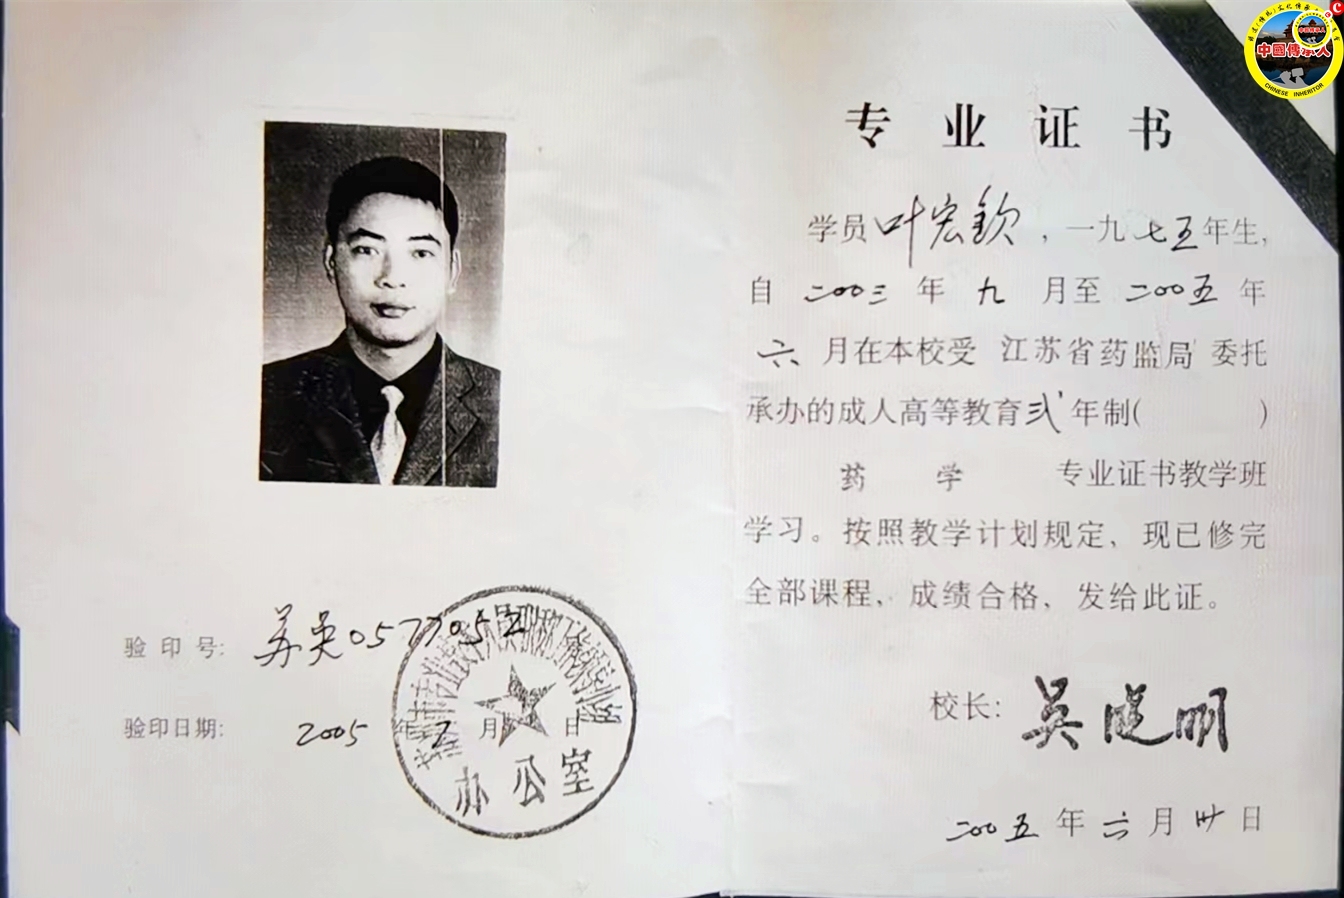 中國傳承人
CHINESE INHERITOR
专业证书
学员叶宏钦，一九七五年生，
自二00三年九月至二00五年
六月在本校受 江苏省药监局 委托
承办的成人高等教育弍年制( )
药学 专业证书教学班
学习。按照教学计划规定，现已修完
全部课程，成绩合格，发给此证。
校长：吴晓明
二00五年六月卅日
验印号：苏吴0577052
验印日期：2005年7月 日
办公室